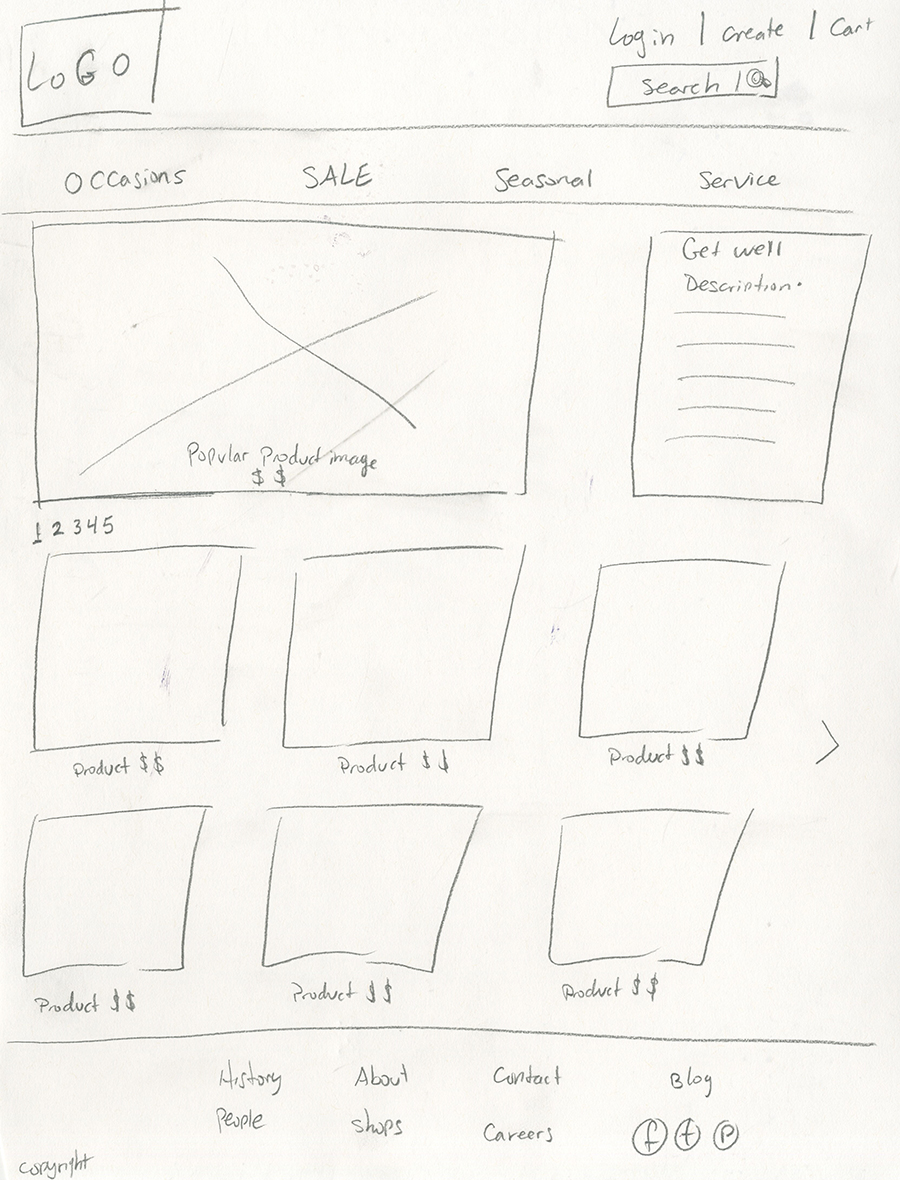 LOGO
Login | Create | Cart
Search |
Occasions SALE Seasonal Service
Get well
Description.
Popular Product image
$ $
1 2 3 4 5
Product $$
Product $$
Product $$
Product $$
Product $$
Product $$
History About Contact Blog
People shops Careers f t p
copyright